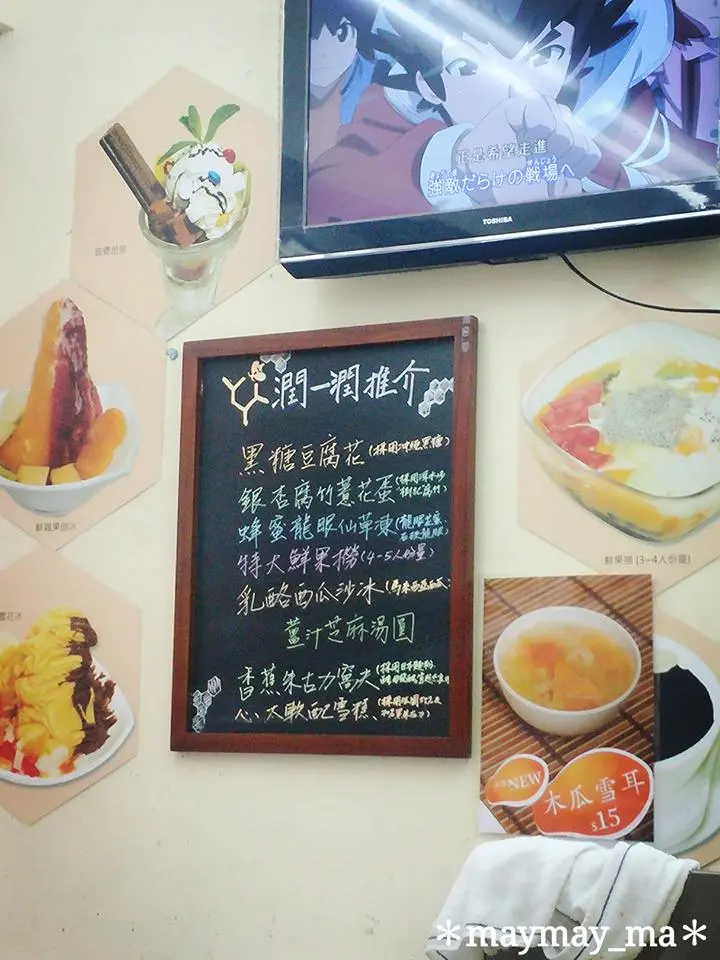 正是希望走進
きょうてき せんじょう
強敵だらけの戦場へ
TOSHIBA
潤一潤推介
黑糖豆腐花(採用沖繩黑糖)
銀杏腐竹薏花蛋
蜂蜜龍眼仙草凍
特大鮮果撈(4-5人份量)
乳酪西瓜沙冰
薑汁芝麻湯圓
香蕉朱古力窩夫
心太軟配雪糕
鮮雜果刨冰
雪花冰
鮮果撈 (3-4人份量)
NEW
木瓜雪耳
$15
*maymay_ma*